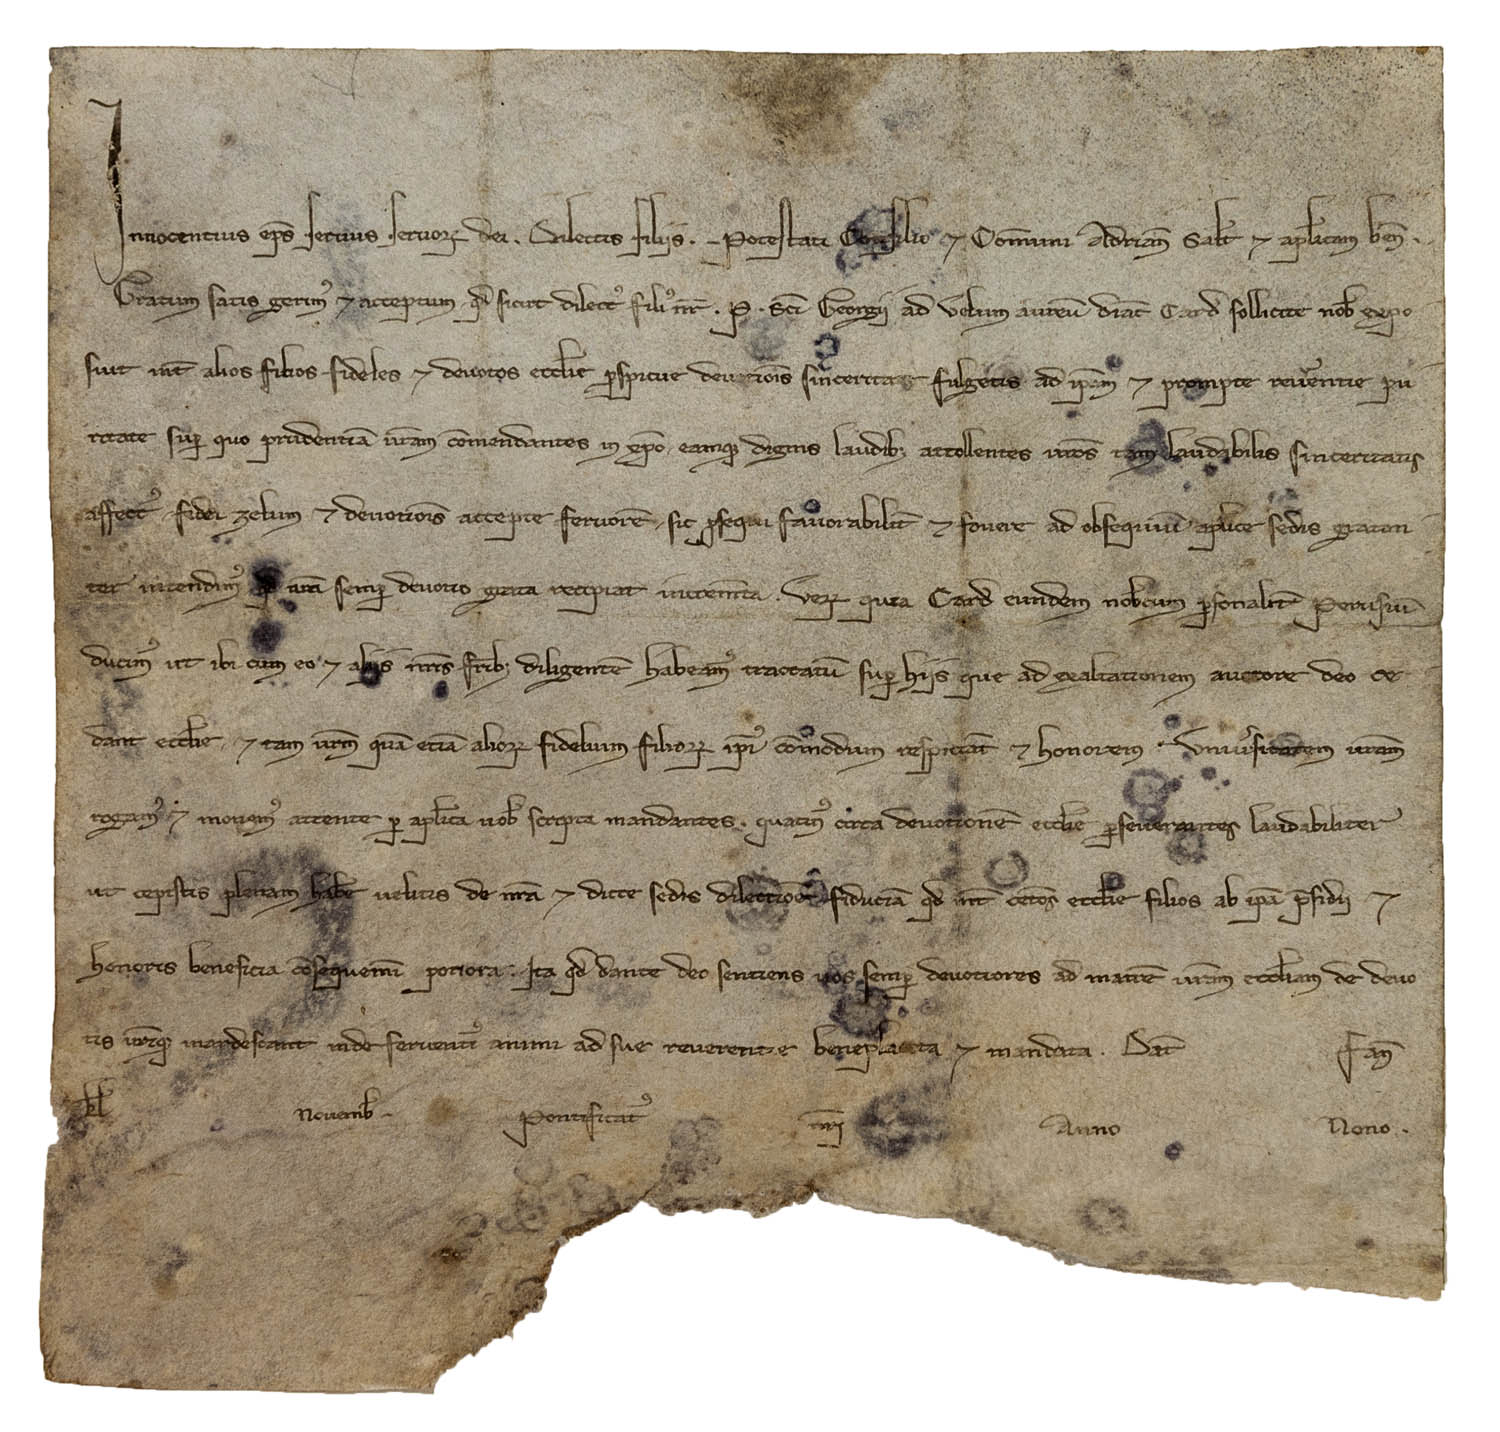 Innocentius ep̅s seruus seruoꝝ dei. Dilectis filiis. Potestati Consilio ⁊ Com̅uni Adrian̅ Salt̅ ⁊ apl̅icam ben̅.
Gratum satis gerimꝰ ⁊ acceptum, qd̅ sicut dilectꝰ filiꝰ nr̅. P. Sc̅i Georgij ad Velum aureu̅ diac̅ Card̅ sollicite nob̅ expo
suit int̅ alios filios fideles ⁊ deuotos eccl̅ie ꝑspicue deuotio̅is sinceritate fulgetis ad ip̅am ⁊ prompte reu̅entie pu
ritate suꝑ quo prudentia̅ ur̅am co̅mendantes in xp̅o, eamqꝫ dignis laudibꝫ attollentes ur̅os tam laudabilis sinceritatis
affectꝰ, fidei zelum ⁊ deuotio̅is accepte feruore̅, sic ꝓsequi fauorabilit̅ ⁊ fouere ad obsequiu̅ apl̅ice sedis gratan
ter intendimꝰ qd̅ ur̅a semꝑ deuotio grata recipiat increm̅ta. Veꝝ quia Card̅ eundem nob̅cum ꝑsonalit̅ Perusiu̅
ducimꝰ ut ibi cum eo ⁊ aliis nr̅is fr̅ibꝫ diligente̅ habeamꝰ tractatu̅ suꝑ hijs que ad exaltationem auctore deo ce
dant eccl̅ie, ⁊ tam ur̅m qua̅ etia̅ alioꝝ fidelium filioꝝ ipiꝰ co̅modum respiciat̅ ⁊ honorem. Uniu̅sitatem ur̅am
rogamꝰ ⁊ monemꝰ attente ꝑ apl̅ica uob̅ scripta mandantes. quatinꝰ circa deuotione̅ eccl̅ie ꝑseuerantes laudabiliter
ut cepistis plenam hab̅e uelitis de nr̅a ⁊ dicte sedis dilectio̅e fiducia̅ qd̅ int̅ cet̅os eccl̅ie filios ab ip̅a p̅sidij ⁊
honoris beneficia co̅sequemi̅ potiora. Ita qd̅ dante deo sentiens uos semꝑ deuotiores ad matre̅ ur̅am eccl̅iam de deuo
tis ur̅iqꝫ inardescant inde feruenti̅ꝰ animi ad sue reuerentie beneplacita ⁊ mandata. Dat̅ Fan̅
kl̅ Nouemb̅. Pontificatꝰ nr̅i Anno Nono.